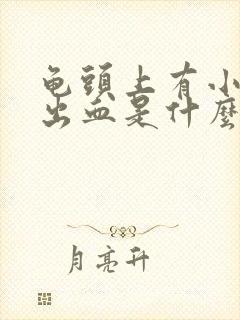 龟頭上有小
出血是什麼
月亮升